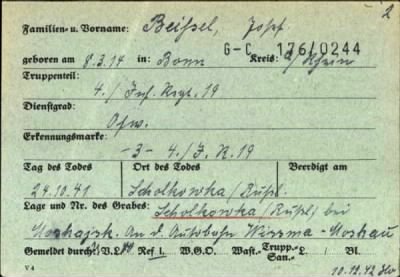 2
Familien- u. Vorname: Beißel, Josef
G-C 176/0244
geboren am 8.3.14 in: Bonn Kreis: a/Rhein
Truppenteil:
4./Inf. Regt. 19
Dienstgrad:
Ofw.
Erkennungsmarke:
-3- 4./J.R.19
Tag des Todes Ort des Todes Beerdigt am
24.10.41 Scholkowka/Rußl.
Lage und Nr. des Grabes: Scholkowka/(Rußl) bei
Moshajsk. An d. Autobahn Wissma-Moskau
Gemeldet durch: V.L. Ref. W.G.O. Wast.- Trupp.-San. L. Bl.
V 4 10.12.42